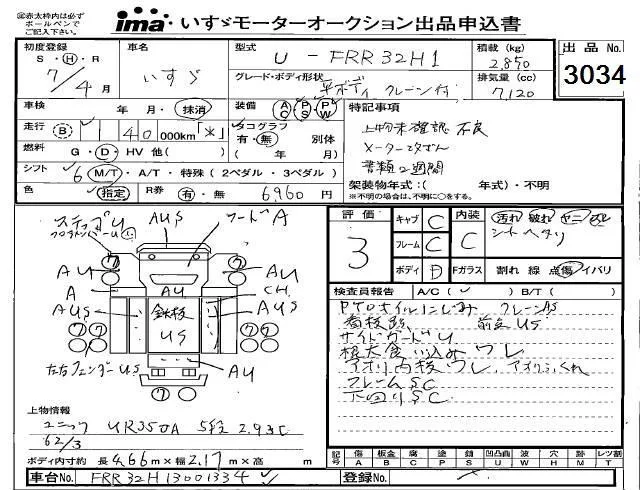 ※赤太枠内は必ず
ボールペンで
ご記入下さい。
ima いすゞモーターオークション出品申込書
初度登録
S・H・R
7/4月
車名
いすゞ
型式
U-FRR32H1
積載(kg)
2,850
出品No.
3034
グレード・ボディ形状
平ボディ クレーン付
排気量(cc)
7,120
車検 年・月・抹消
装備 AC PS PW
特記事項
走行 B 140 000km「*」
タコグラフ
有・無 別体
( 年 月)
燃料 G・D・HV 他( )
シフト 6 M/T・A/T・特殊(2ペダル・3ペダル)
上物未確認 不良
書類2週間
色 指定 R券 有・無 6,960円
架装物年式:( 年式)・不明
※不明の場合は、不明に○をする。
評価
3
キャブ C
フレーム C
ボディ D
内装 C
汚れ 破れ
シートヘタリ
Fガラス 割れ 線 点 傷 イバリ
AUS
フードA
AU
A
AUS
AU
鉄板
US
AU
CH
AUS
AU
左右フェンダーUS
検査員報告 A/C( ) B/T( )
PTOオイルにじみ クレーンAS
看板跡 前立US
サイドガードU
根太食い込みワレ
アオリ内板ワレ アオリふくれ
フレームSC
下回りSC
上物情報
ユニック UR350A 5段 2.93t
62/3
ボディ内寸約 長4.66m×幅2.17m×高 m
記号 傷 板金 腐 塗 錆 凹凸曲 波 穴 時 レッ割
A B C P S U W H M T
車台No. FRR32H13001334
登録No.